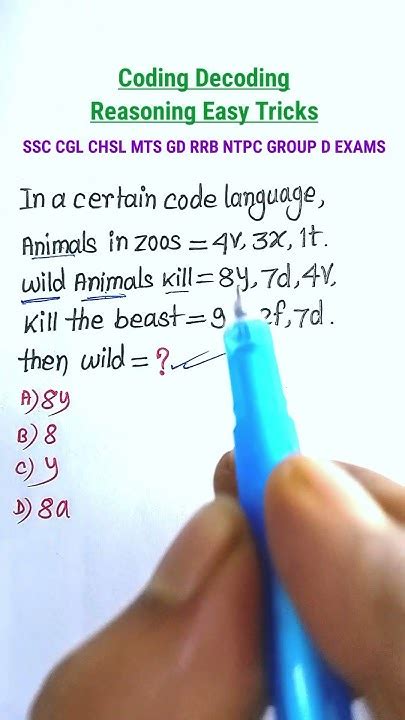 Coding Decoding
Reasoning Easy Tricks
SSC CGL CHSL MTS GD RRB NTPC GROUP D EXAMS
In a certain code language,
Animals in zoos = 4v, 3x, 1t.
wild Animals kill = 8y, 7d, 4v,
kill the beast = 7d.
then wild = ?
A) 8y
B) 8
C) y
D) 8a